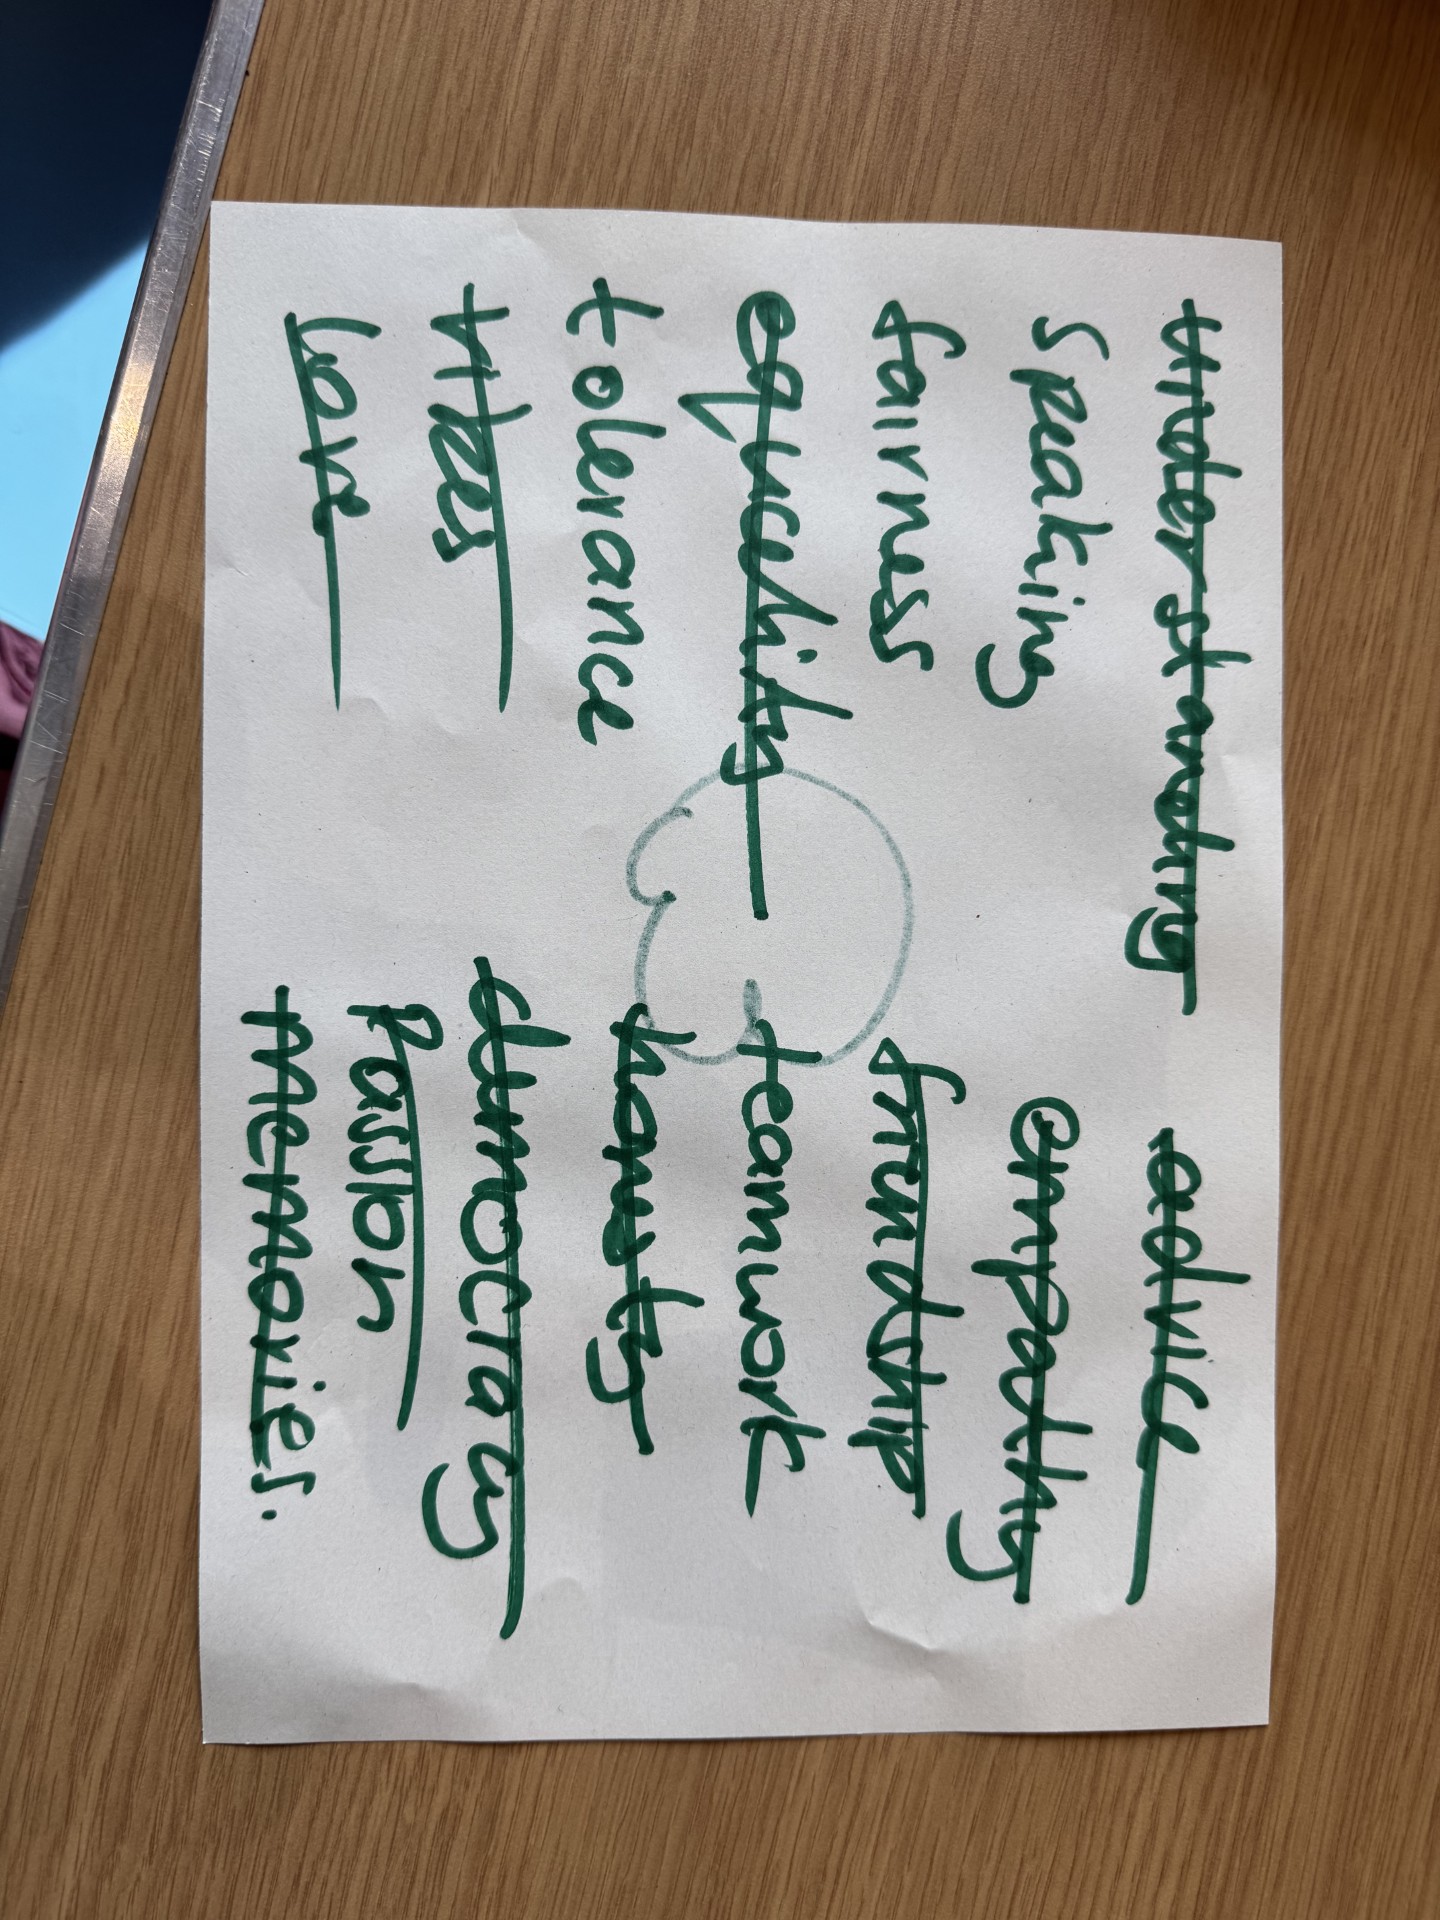 understanding
speaking
fairness
equality
tolerance
vibes
love
advice
empathy
friendship
teamwork
honesty
democracy
Passion
memories.